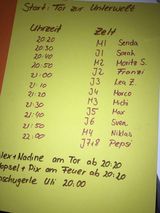 Start: Tor zur Unterwelt
Uhrzeit Zelt
20:20 M1 Senda
20:30 J1 Sarah
20:40 M2 Moritz S.
20:50 J2 Franzi
21:00 J3 Lea Z.
21:10 J4 Marco
21:20 M3 Michi
21:30 J5 Max
21:40 J6 Sven
21:50 M4 Niklas
22:00 J7+8 Pepsi
lex+Nadine am Tor ab 20:20
opsel + Dix am Feuer ab 20:20
Uli 20:00